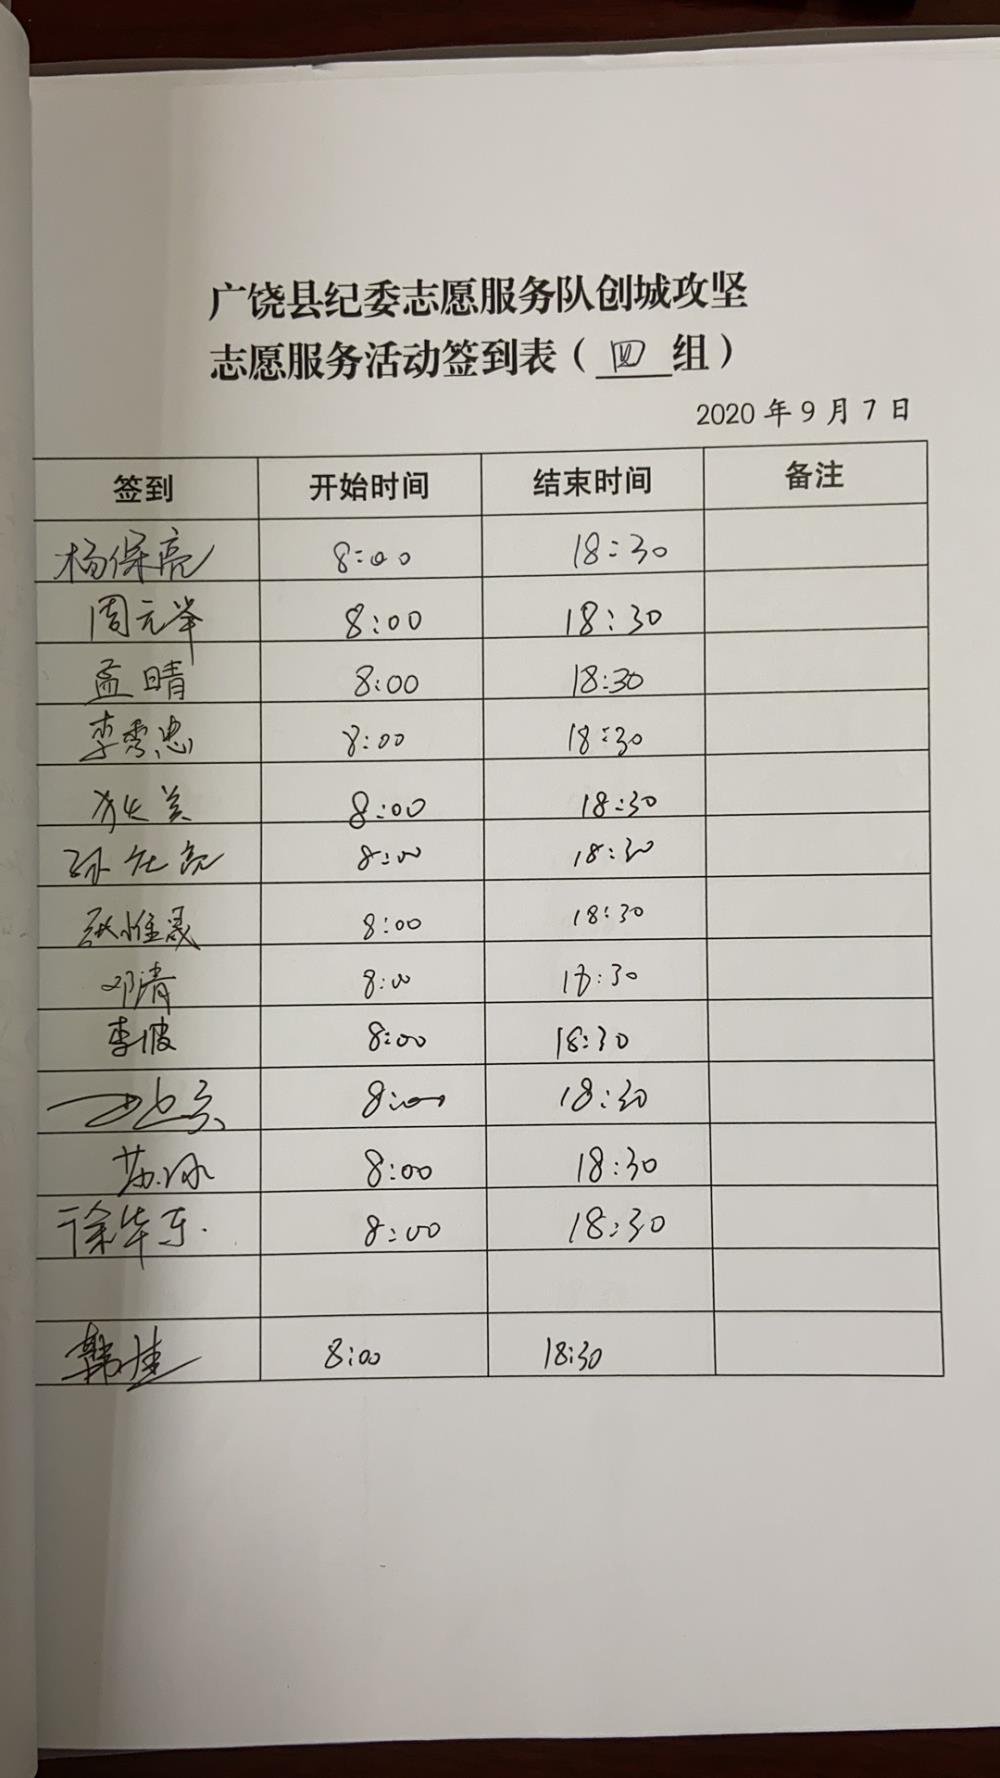 广饶县纪委志愿服务队创城攻坚
志愿服务活动签到表（四组）
2020年9月7日
签到 开始时间 结束时间 备注
杨保亮 8:00 18:30
周元举 8:00 18:30
孟晴 8:00 18:30
李秀忠 8:00 18:30
8:00 18:30
孙 亮 8:00 18:30
张惟晟 8:00 18:30
邓清 8:00 18:30
李波 8:00 18:30
8:00 18:30
苏冰 8:00 18:30
徐华东 8:00 18:30
韩佳 8:00 18:30